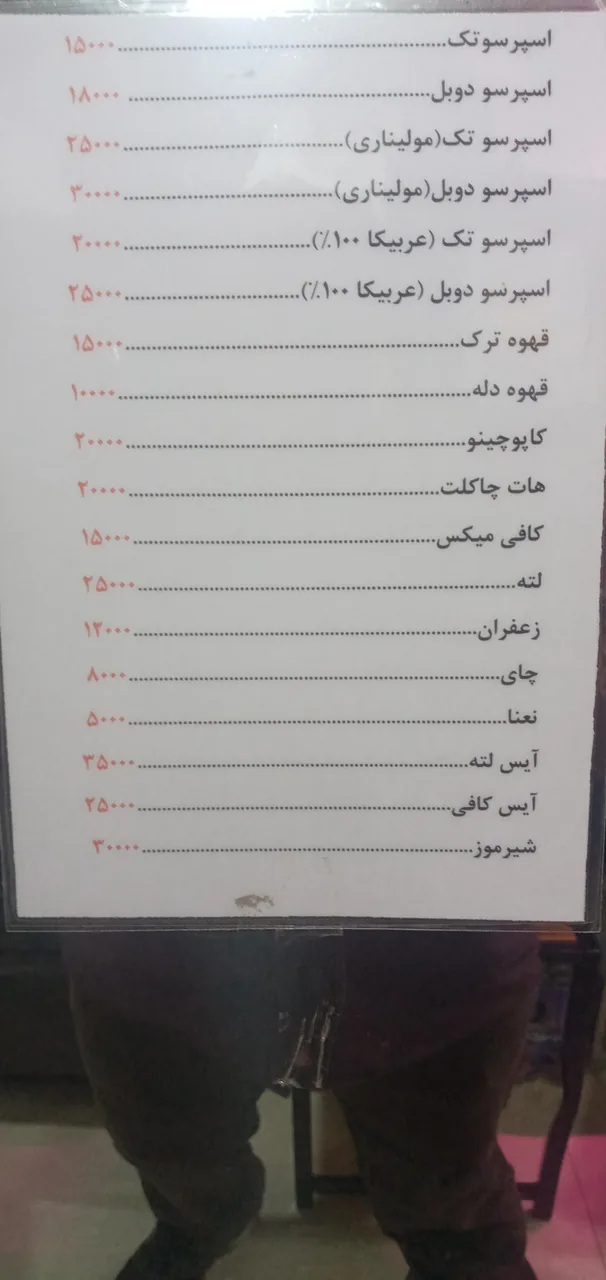 اسپرسوتک..........۱۵۰۰۰
اسپرسو دوبل..........۱۸۰۰۰
اسپرسو تک(مولیناری)..........۲۵۰۰۰
اسپرسو دوبل(مولیناری)..........۳۰۰۰۰
اسپرسو تک (عربیکا ۱۰۰٪)..........۲۰۰۰۰
اسپرسو دوبل (عربیکا ۱۰۰٪)..........۲۵۰۰۰
قهوه ترک..........۱۵۰۰۰
قهوه دله..........۱۰۰۰۰
کاپوچینو..........۲۰۰۰۰
هات چاکلت..........۲۰۰۰۰
کافی میکس..........۱۵۰۰۰
لته..........۲۵۰۰۰
زعفران..........۱۲۰۰۰
چای..........۸۰۰۰
نعنا..........۵۰۰۰
آیس لته..........۳۵۰۰۰
آیس کافی..........۲۵۰۰۰
شیرموز..........۳۰۰۰۰